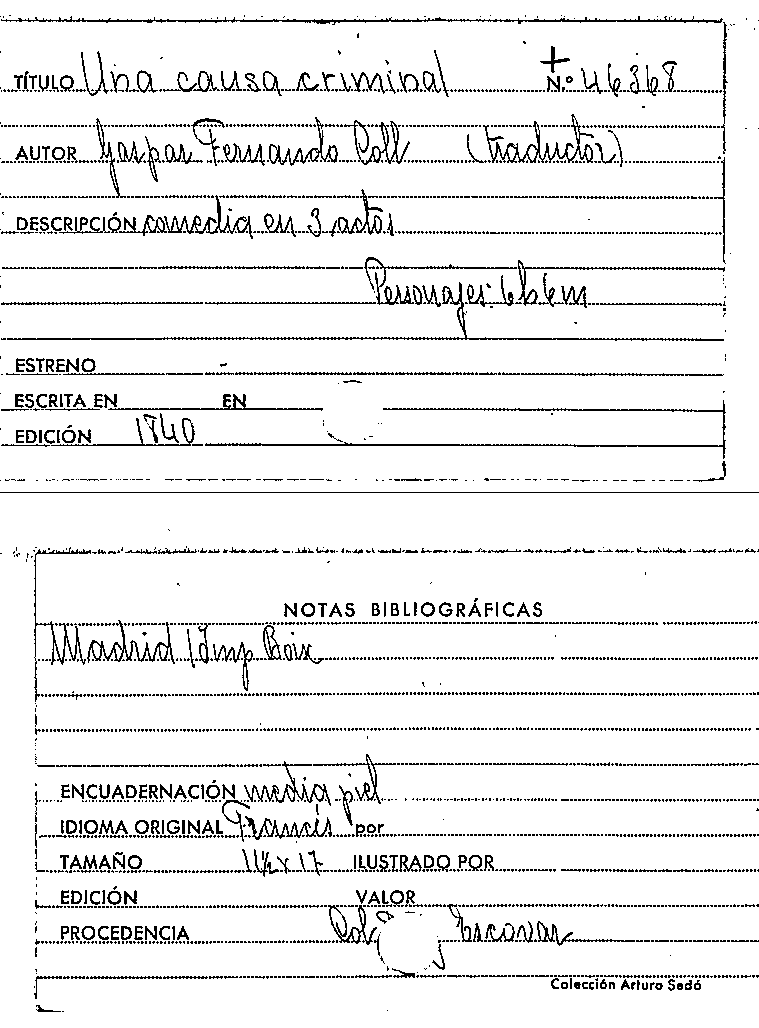 TÍTULO Una causa criminal + N.º 46368
AUTOR Gaspar Fernando Coll (traductor)
DESCRIPCIÓN comedia en 3 actos
Personajes: 6h 6m
ESTRENO -
ESCRITA EN EN
EDICIÓN 1840
NOTAS BIBLIOGRÁFICAS
Madrid / Imp Boix
ENCUADERNACIÓN media piel
IDIOMA ORIGINAL Francés por
TAMAÑO 11½ x 17 ILUSTRADO POR
EDICIÓN VALOR
PROCEDENCIA Escovar
Colección Arturo Sedó